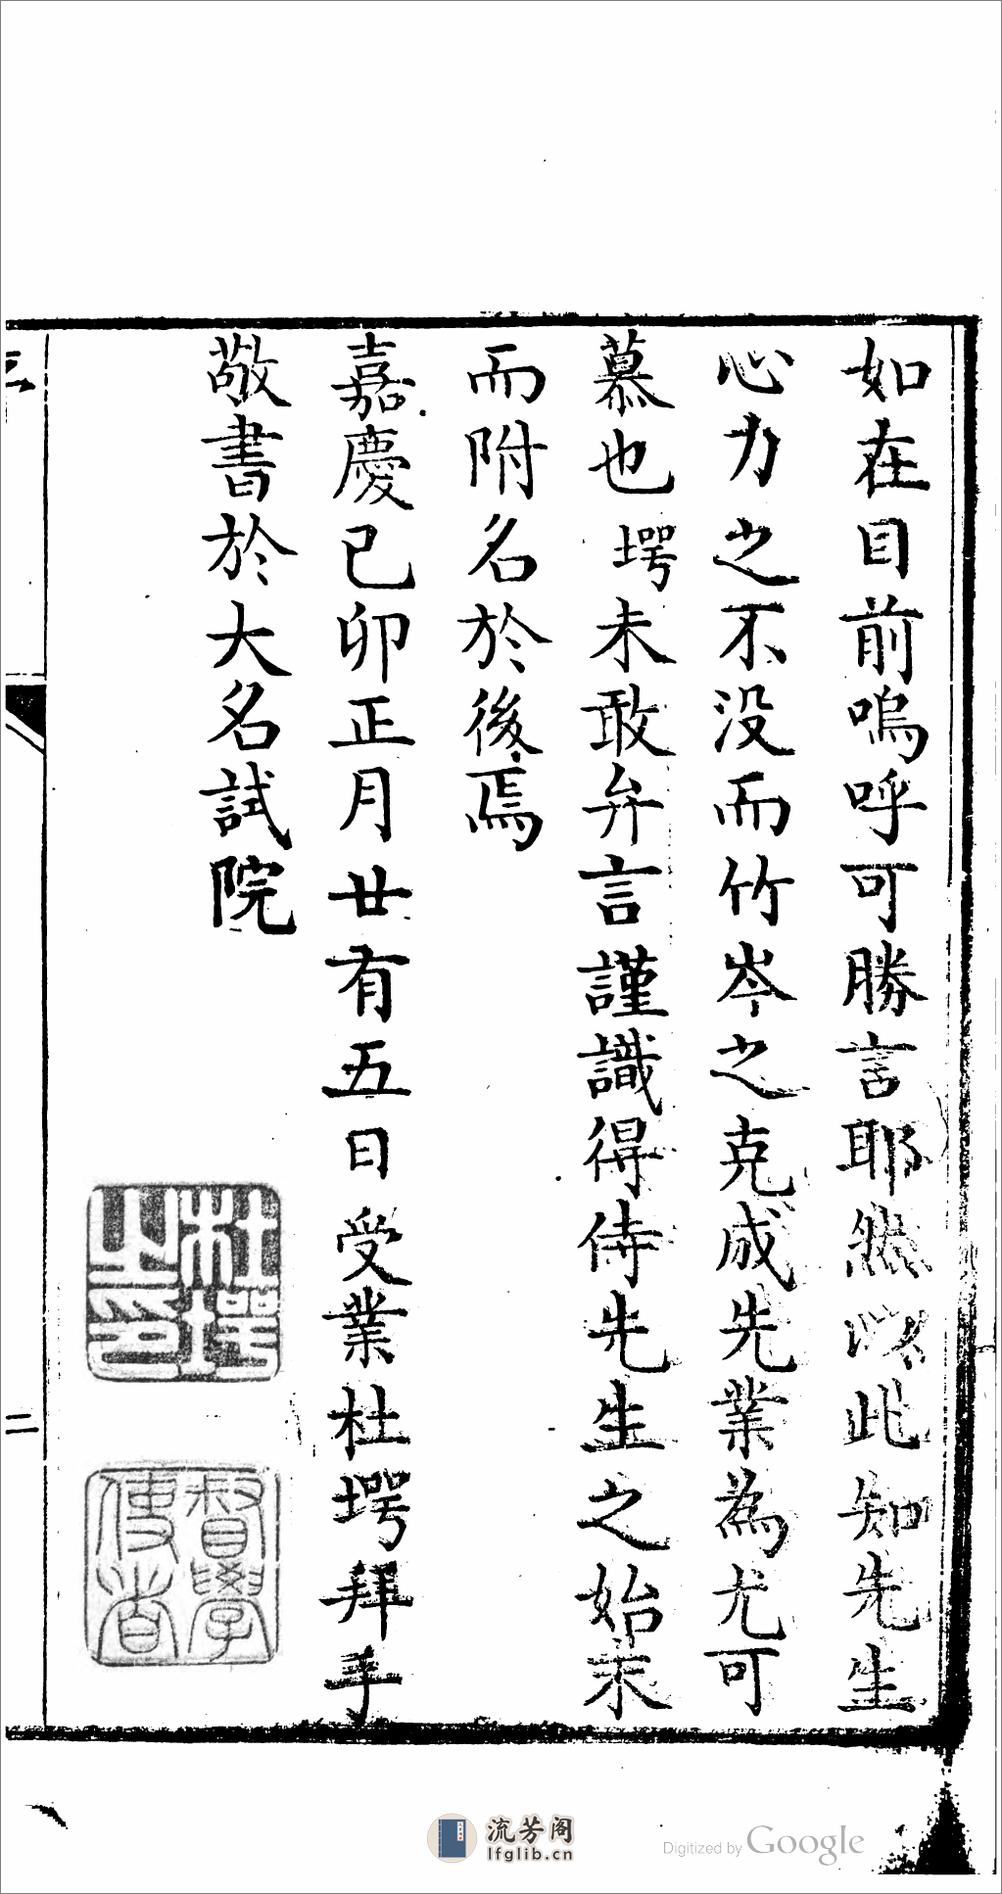 如在目前嗚呼可勝言耶然以此知先生
心力之不没而竹岑之克成先業為尤可
慕也堮未敢弁言謹識得侍先生之始末
而附名於後焉
嘉慶已卯正月廿有五日受業杜堮拜手
敬書於大名試院
杜堮之印
督學使者
二
流芳阁
lfglib.cn
Digitized by Google